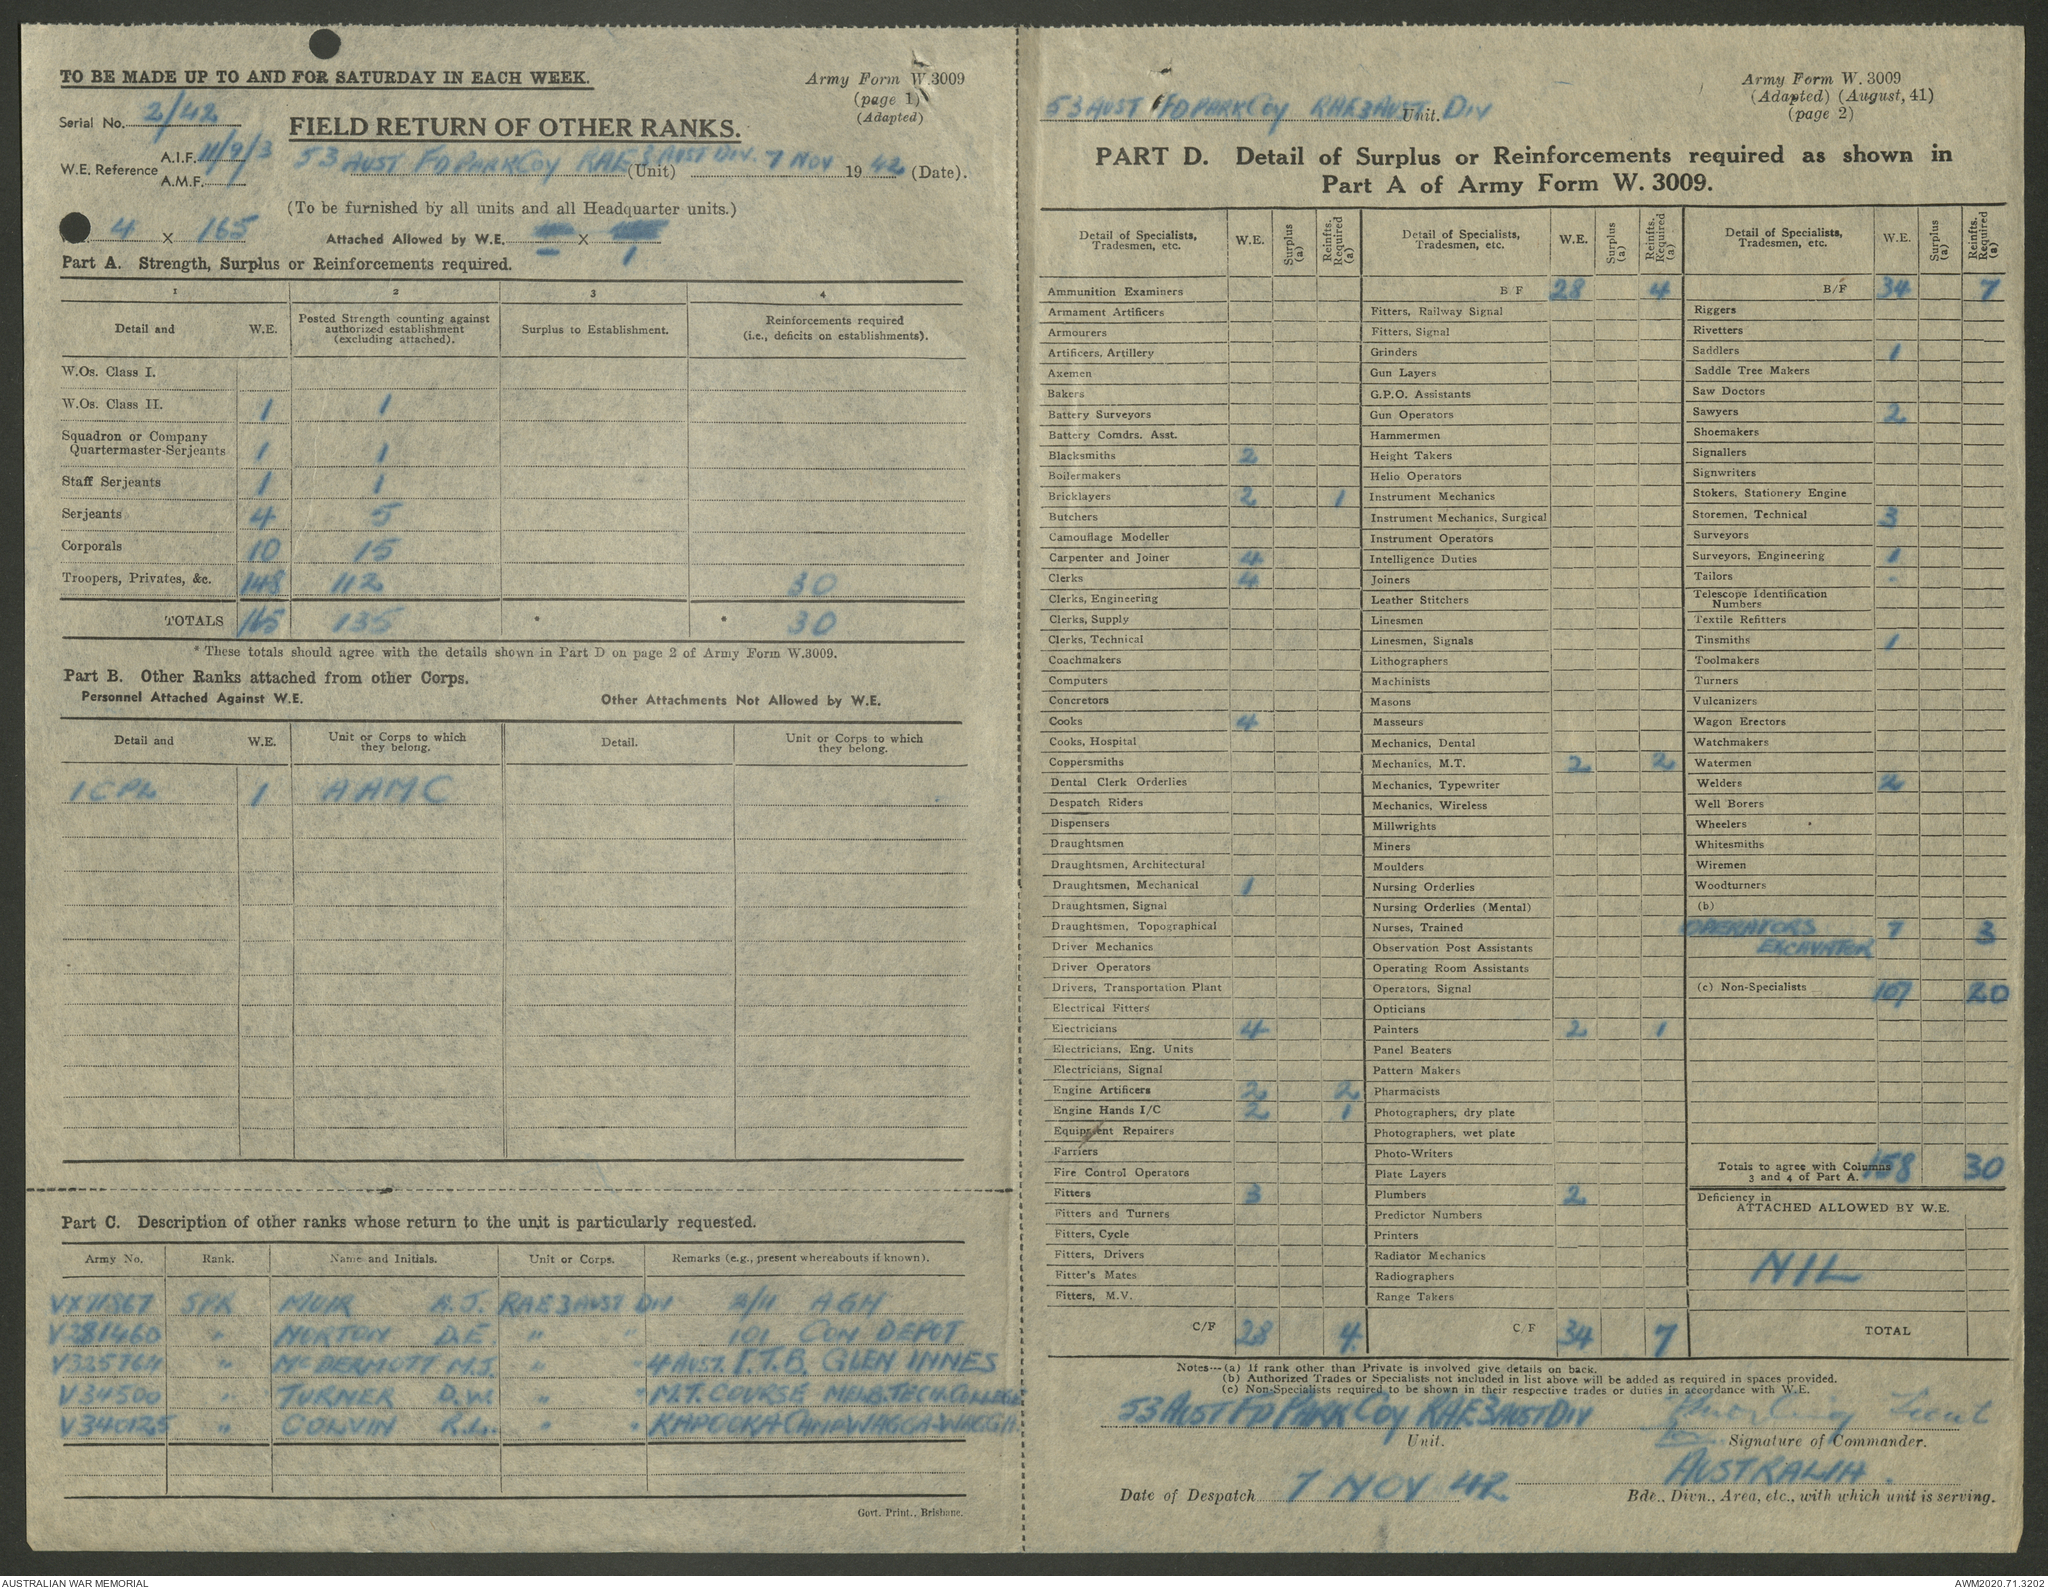 TO BE MADE UP TO AND FOR SATURDAY IN EACH WEEK.
Army Form W.3009
(page 1)
(Adapted)
Serial No. 2/42
FIELD RETURN OF OTHER RANKS.
W.E. Reference A.I.F. 11/9/3
A.M.F.
53 AUST FD PARK COY RAE 3 AUST DIV. (Unit) 7 NOV 19 42 (Date).
(To be furnished by all units and all Headquarter units.)
4 x 165 Attached Allowed by W.E. x
1
Part A. Strength, Surplus or Reinforcements required.
1 2 3 4
Detail and W.E. Posted Strength counting against authorized establishment (excluding attached). Surplus to Establishment. Reinforcements required (i.e., deficits on establishments).
W.Os. Class I.
W.Os. Class II. 1 1
Squadron or Company
Quartermaster-Serjeants 1 1
Staff Serjeants 1 1
Serjeants 4 5
Corporals 10 15
Troopers, Privates, &c. 148 112 30
TOTALS 165 135 * * 30
* These totals should agree with the details shown in Part D on page 2 of Army Form W.3009.
Part B. Other Ranks attached from other Corps.
Personnel Attached Against W.E. Other Attachments Not Allowed by W.E.
Detail and W.E. Unit or Corps to which they belong. Detail. Unit or Corps to which they belong.
1 CPL 1 AAMC
Part C. Description of other ranks whose return to the unit is particularly requested.
Army No. Rank. Name and Initials. Unit or Corps. Remarks (e.g., present whereabouts if known).
VX71867 SPR MUIR A.J. RAE 3 AUST DIV 2/11 AGH
V281460 " NORTON D.E. " " 101 CON DEPOT
V325764 " McDERMOTT M.J. " " 4 AUST. I.T.B. GLEN INNES
V34500 " TURNER D.W. " " M.T. COURSE MELB. TECH. COLLEGE
V340125 " COLVIN R.L. " " KAPOOKA CAMP WAGGA-WAGGA.
Govt. Print., Brisbane.
53 AUST FD PARK COY RAE 3 AUST. DIV Unit.
Army Form W. 3009
(Adapted) (August, 41)
(page 2)
PART D. Detail of Surplus or Reinforcements required as shown in
Part A of Army Form W. 3009.
Detail of Specialists, Tradesmen, etc. W.E. Surplus (a) Reinfts. Required (a)
Ammunition Examiners
Armament Artificers
Armourers
Artificers, Artillery
Axemen
Bakers
Battery Surveyors
Battery Comdrs. Asst.
Blacksmiths 2
Boilermakers
Bricklayers 2 1
Butchers
Camouflage Modeller
Carpenter and Joiner 4
Clerks 4
Clerks, Engineering
Clerks, Supply
Clerks, Technical
Coachmakers
Computers
Concretors
Cooks 4
Cooks, Hospital
Coppersmiths
Dental Clerk Orderlies
Despatch Riders
Dispensers
Draughtsmen
Draughtsmen, Architectural
Draughtsmen, Mechanical 1
Draughtsmen, Signal
Draughtsmen, Topographical
Driver Mechanics
Driver Operators
Drivers, Transportation Plant
Electrical Fitters
Electricians 4
Electricians, Eng. Units
Electricians, Signal
Engine Artificers 2 2
Engine Hands I/C 2 1
Equipment Repairers
Farriers
Fire Control Operators
Fitters 3
Fitters and Turners
Fitters, Cycle
Fitters, Drivers
Fitter's Mates
Fitters, M.V.
C/F 28 4
Detail of Specialists, Tradesmen, etc. W.E. Surplus (a) Reinfts. Required (a)
B F 28 4
Fitters, Railway Signal
Fitters, Signal
Grinders
Gun Layers
G.P.O. Assistants
Gun Operators
Hammermen
Height Takers
Helio Operators
Instrument Mechanics
Instrument Mechanics, Surgical
Instrument Operators
Intelligence Duties
Joiners
Leather Stitchers
Linesmen
Linesmen, Signals
Lithographers
Machinists
Masons
Masseurs
Mechanics, Dental
Mechanics, M.T. 2 2
Mechanics, Typewriter
Mechanics, Wireless
Millwrights
Miners
Moulders
Nursing Orderlies
Nursing Orderlies (Mental)
Nurses, Trained
Observation Post Assistants
Operating Room Assistants
Operators, Signal
Opticians
Painters 2 1
Panel Beaters
Pattern Makers
Pharmacists
Photographers, dry plate
Photographers, wet plate
Photo-Writers
Plate Layers
Plumbers 2
Predictor Numbers
Printers
Radiator Mechanics
Radiographers
Range Takers
C/F 34 7
Detail of Specialists, Tradesmen, etc. W.E. Surplus (a) Reinfts. Required (a)
B/F 34 7
Riggers
Rivetters
Saddlers 1
Saddle Tree Makers
Saw Doctors
Sawyers 2
Shoemakers
Signallers
Signwriters
Stokers, Stationery Engine
Storemen, Technical 3
Surveyors
Surveyors, Engineering 1
Tailors
Telescope Identification
Numbers
Textile Refitters
Tinsmiths 1
Toolmakers
Turners
Vulcanizers
Wagon Erectors
Watchmakers
Watermen
Welders 2
Well Borers
Wheelers
Whitesmiths
Wiremen
Woodturners
(b)
OPERATORS 7 3
EXCAVATOR
(c) Non-Specialists 107 20
Totals to agree with Columns
3 and 4 of Part A. 158 30
Deficiency in
ATTACHED ALLOWED BY W.E.
NIL
TOTAL
Notes--(a) If rank other than Private is involved give details on back.
(b) Authorized Trades or Specialists not included in list above will be added as required in spaces provided.
(c) Non-Specialists required to be shown in their respective trades or duties in accordance with W.E.
53 AUST FD PARK COY RAE 3 AUST DIV Lieut
Unit. Signature of Commander.
AUSTRALIA.
Date of Despatch 7 NOV 42 Bde., Divn., Area, etc., with which unit is serving.
AUSTRALIAN WAR MEMORIAL
AWM2020.71.3202